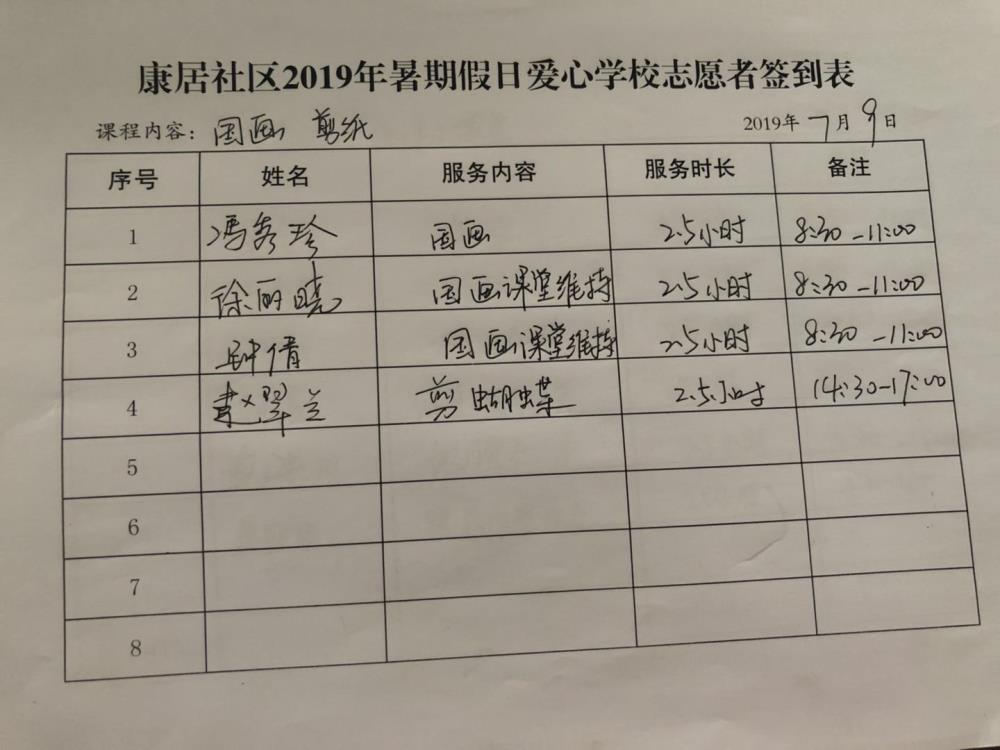 康居社区2019年暑期假日爱心学校志愿者签到表
课程内容：国画 剪纸 2019年7月9日
序号 姓名 服务内容 服务时长 备注
1 冯秀珍 国画 2.5小时 8:30-11:00
2 徐丽晓 国画课堂维持 2.5小时 8:30-11:00
3 钟倩 国画课堂维持 2.5小时 8:30-11:00
4 赵翠兰 剪蝴蝶 2.5小时 14:30-17:00
5
6
7
8